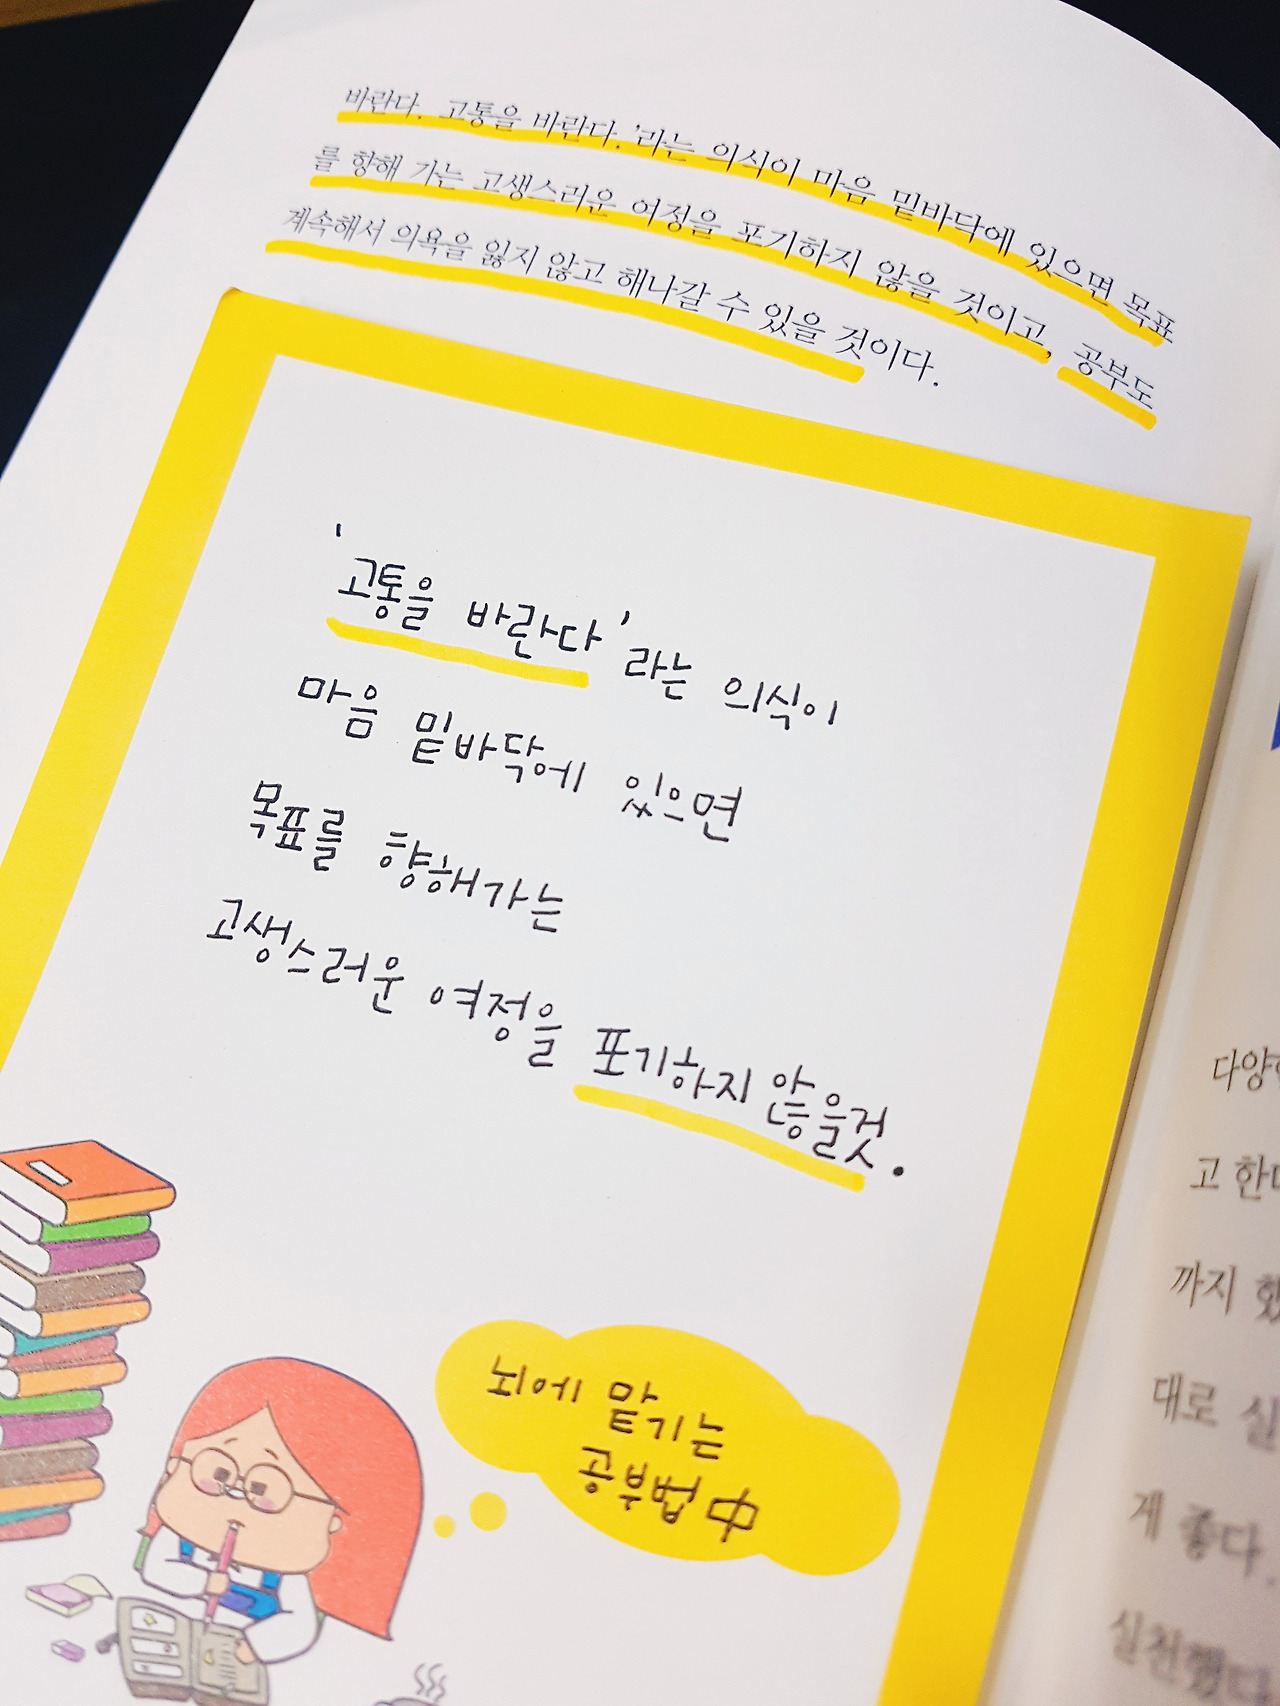 바란다. 고통을 바란다.'라는 의식이 마음 밑바닥에 있으면 목표
를 향해 가는 고생스러운 여정을 포기하지 않을 것이고, 공부도
계속해서 의욕을 잃지 않고 해나갈 수 있을 것이다.
'고통을 바란다'라는 의식이
마음 밑바닥에 있으면
목표를 향해가는
고생스러운 여정을 포기하지 않을것.
뇌에 맡기는
공부법 中
고 한
까지 했
대로 실
게 좋다.
실천했다